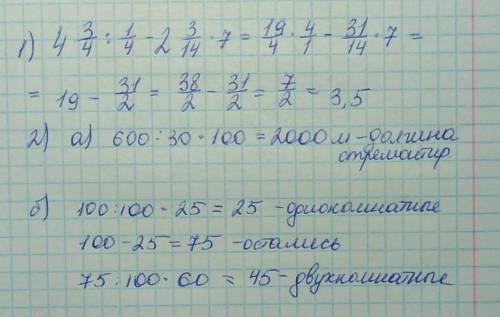 1) 4 3/4 : 1/4 - 2 3/14 · 7 = 19/4 · 4/1 - 31/14 · 7 =
= 19 - 31/2 = 38/2 - 31/2 = 7/2 = 3,5
2) а) 600 : 30 · 100 = 2000 м - должина
отремонтир.
б) 100 : 100 · 25 = 25 - однокомнатные
100 - 25 = 75 - остались
75 : 100 · 60 = 45 - двухкомнатные